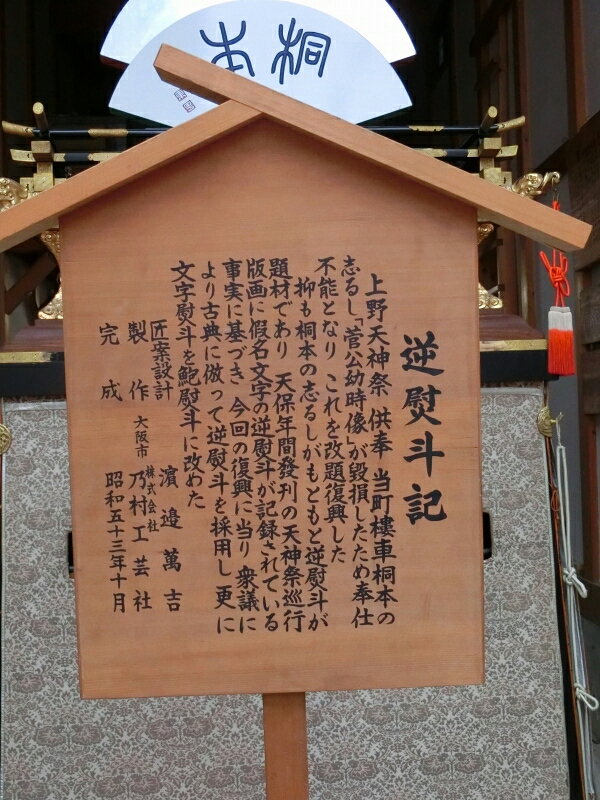 桐本
逆熨斗記
上野天神祭 供奉 当町樓車桐本の
志るし「菅公幼時像」が毀損したため奉仕
不能となり これを改題復興した
抑も桐本の志るしがもともと逆熨斗が
題材であり 天保年間發刊の天神祭巡行
版画に假名文字の逆熨斗が記録されている
事実に基づき 今回の復興に当り 衆議に
より古典に倣って逆熨斗を採用し 更に
文字熨斗を鮑熨斗に改めた
匠案設計 濵邉萬吉
製作 大阪市 株式会社 乃村工芸社
完成 昭和五十三年十月